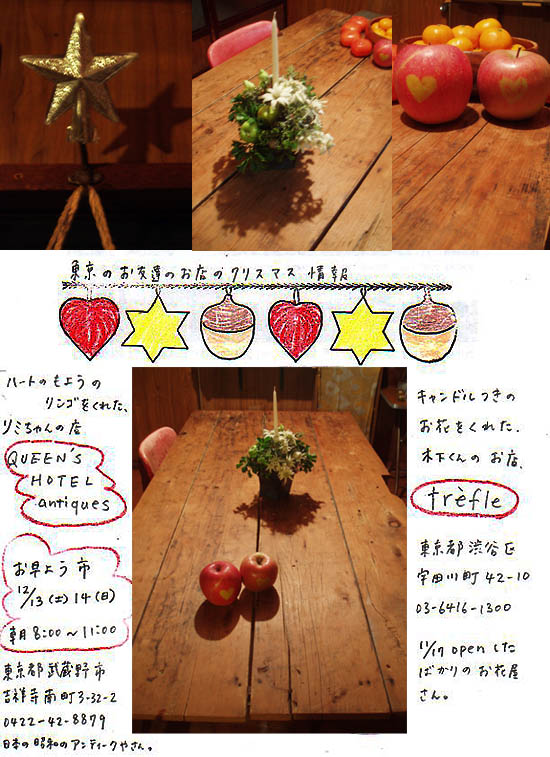 東京のお友達のお店のクリスマス情報
ハートのもようの
リンゴをくれた、
リミちゃんの店
QUEEN'S
HOTEL
antiques
お早よう市
12/13(土)14(日)
朝8:00〜11:00
東京都武蔵野市
吉祥寺南町3-32-2
0422-42-8879
日本の昭和のアンティークやさん。
キャンドルつきの
お花をくれた、
木下くんのお店、
trèfle
東京都渋谷区
宇田川町42-10
03-6416-1300
11/17 openした
ばかりのお花屋
さん。